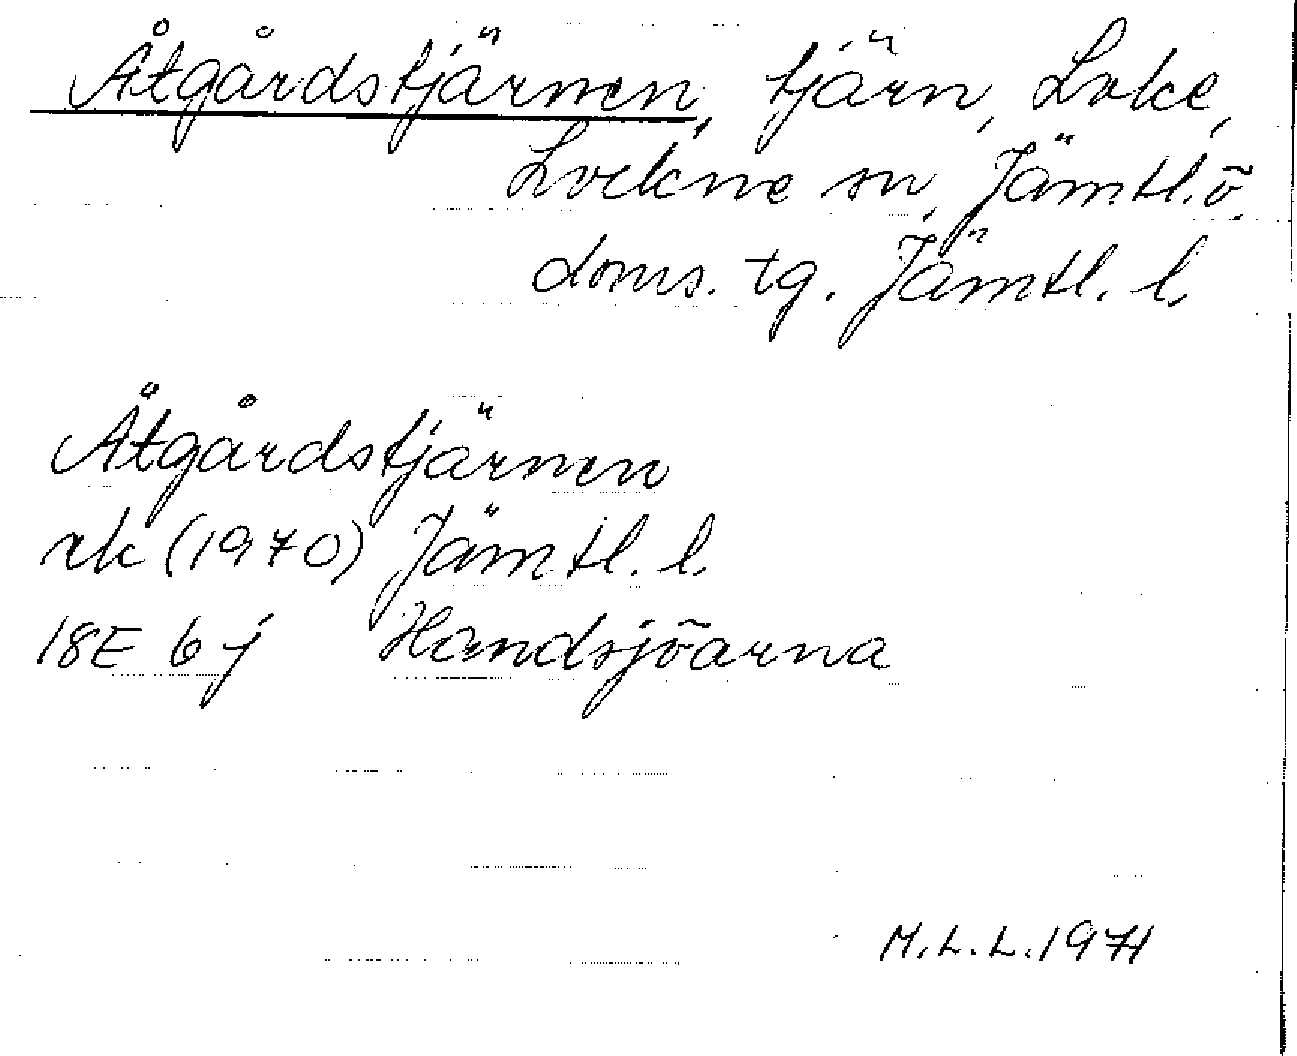 Åtgårdstjärnen, tjärn, Loke,
Lockne sn, Jämtl. ö.
doms. tg. Jämtl. l.
Åtgårdstjärnen
rk (1970) Jämtl. l.
18E 6j Handsjöarna
M.L.L. 1971